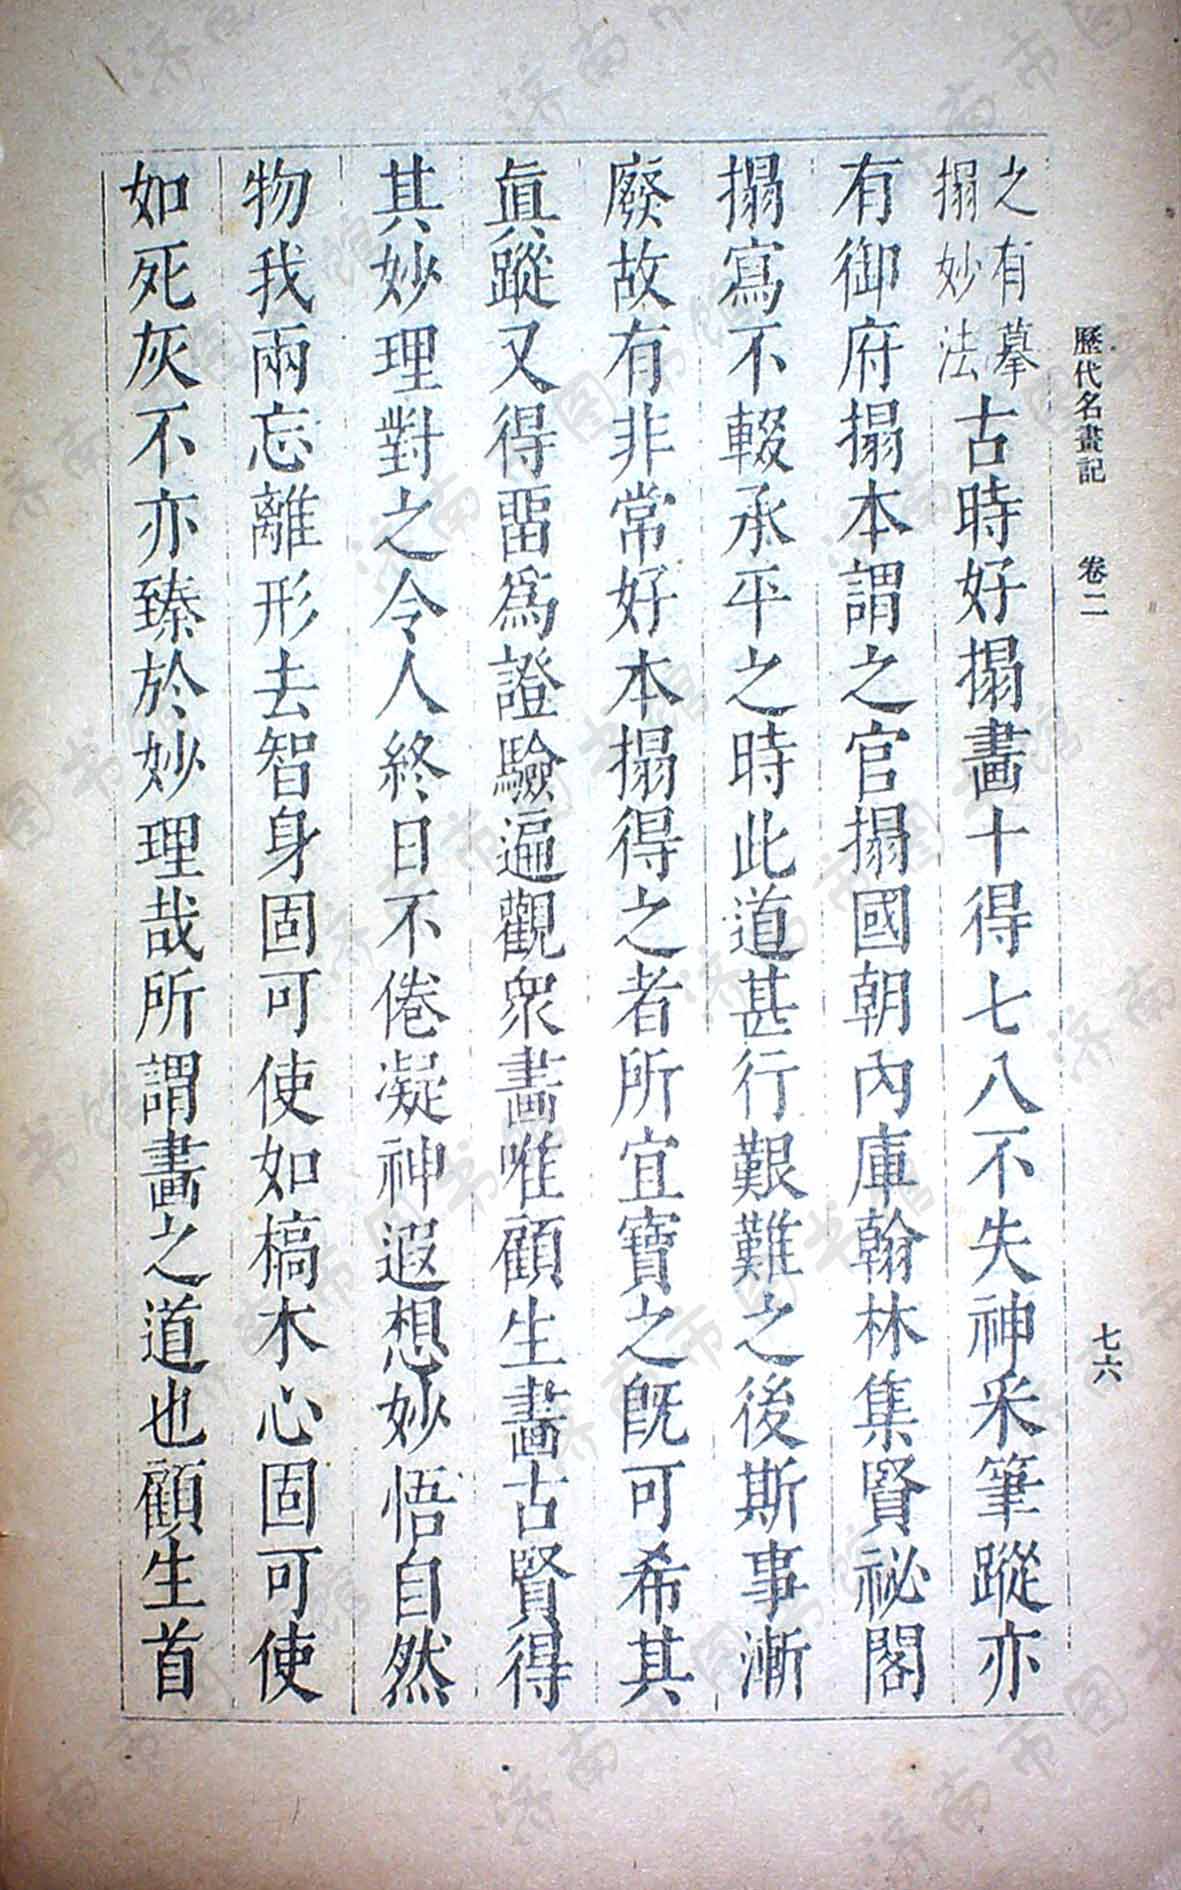 歷代名畫記 卷二 七六
之有摹
搨妙法
古時好搨畫十得七八不失神采筆蹤亦
有御府搨本謂之官搨國朝內庫翰林集賢祕閣
搨寫不輟承平之時此道甚行艱難之後斯事漸
廢故有非常好本搨得之者所宜寶之旣可希其
眞蹤又得畱爲證驗遍觀衆畫唯顧生畫古賢得
其妙理對之令人終日不倦凝神遐想妙悟自然
物我兩忘離形去智身固可使如槁木心固可使
如死灰不亦臻於妙理哉所謂畫之道也顧生首
济南市图书馆